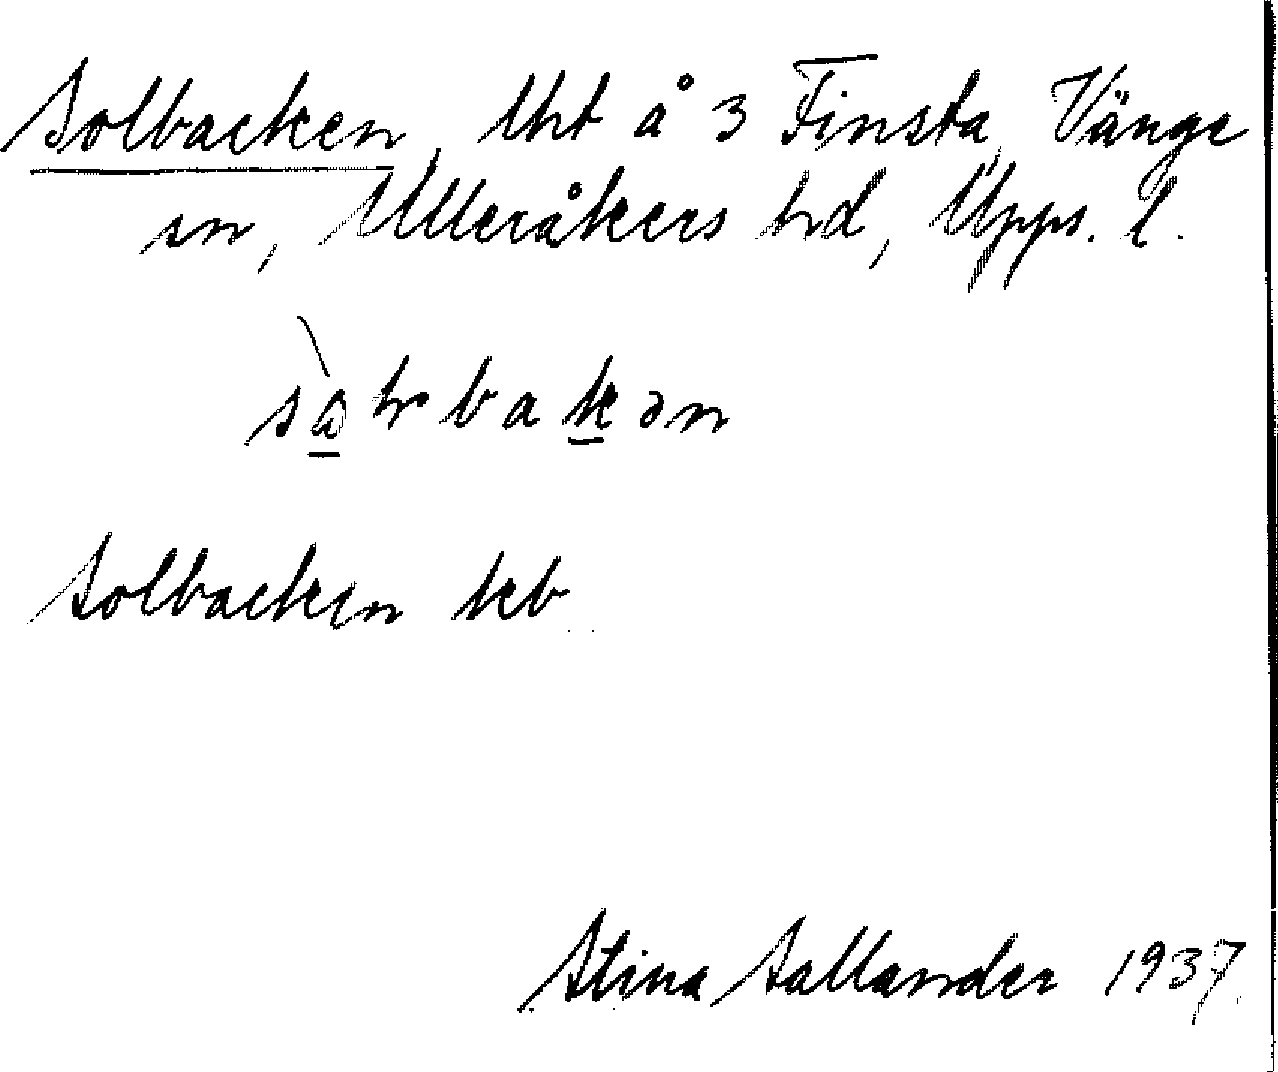 Solbacken, lht å 3 Finsta, Vänge
sn, Ulleråkers hd, Upps. l.
Solbacken kb
Stina Sallander 1937.